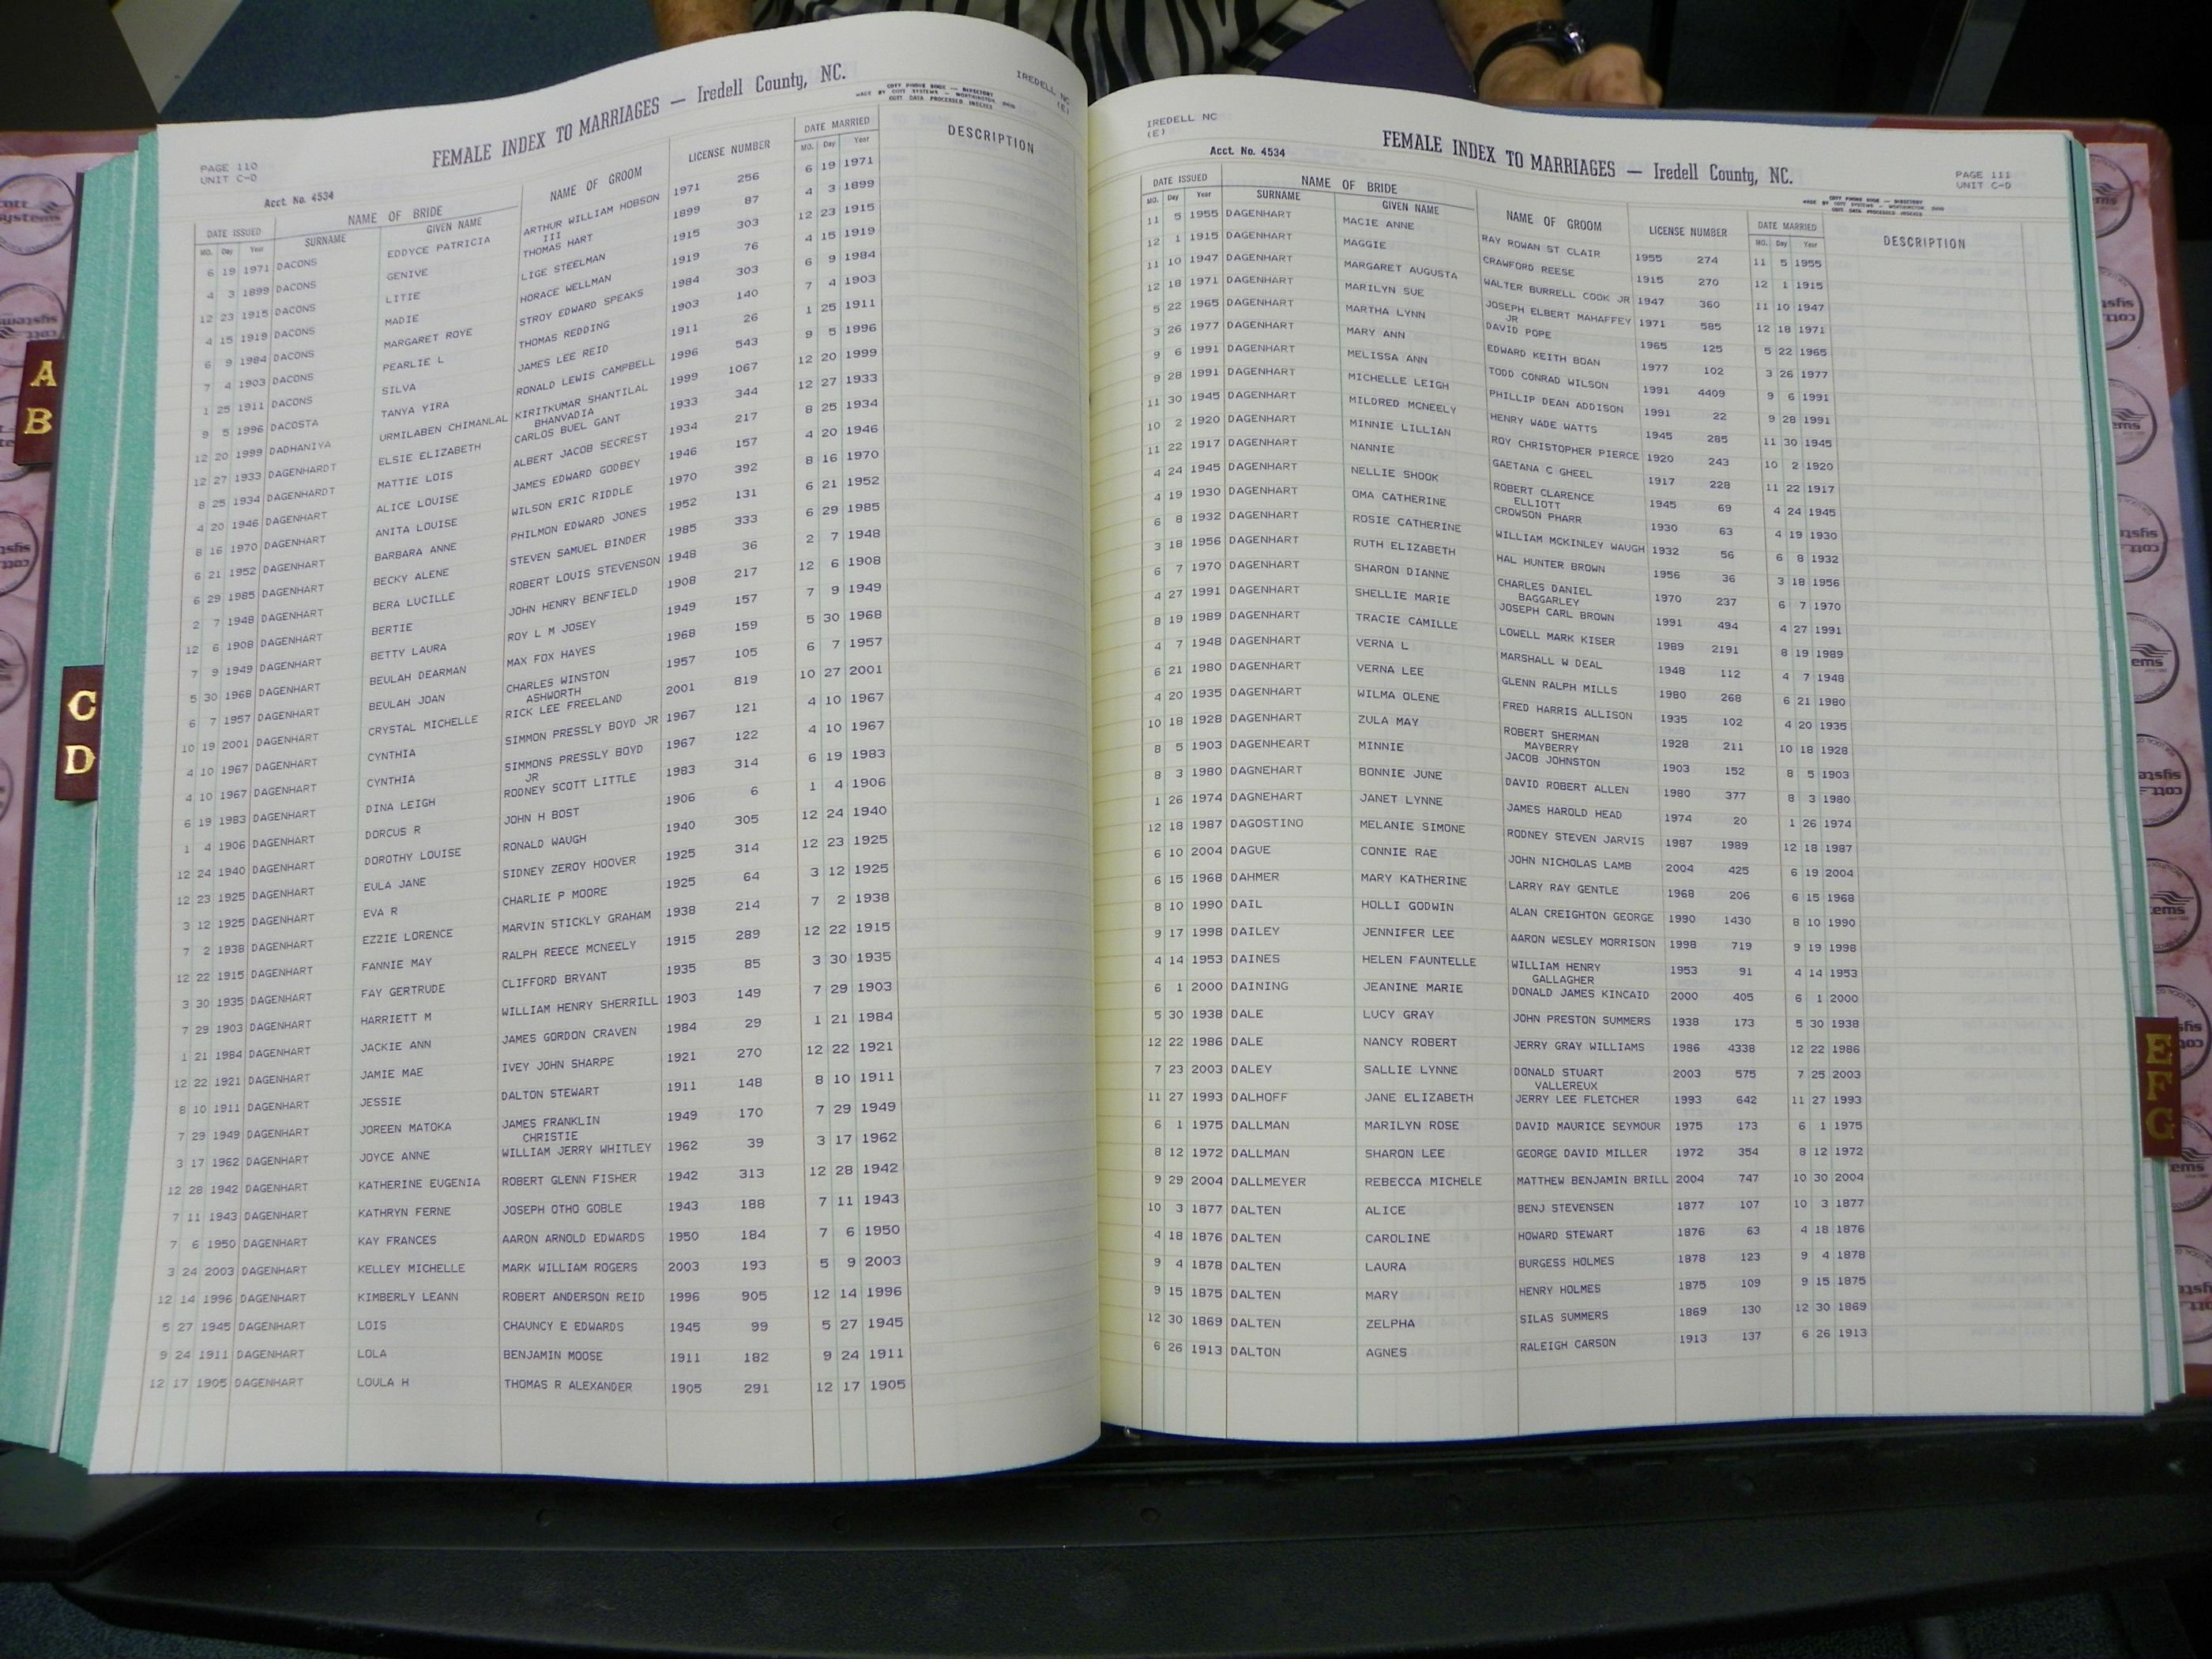 PAGE 110
UNIT C-D
FEMALE INDEX TO MARRIAGES — Iredell County, NC.
COTT PHONIC INDEX — DIRECTORY
MADE BY COTT SYSTEMS — WORTHINGTON, OHIO
COTT DATA PROCESSED INDEXES
IREDELL NC
(E)
Acct. No. 4534
DATE ISSUED NAME OF BRIDE NAME OF GROOM LICENSE NUMBER DATE MARRIED DESCRIPTION
MO. Day Year SURNAME GIVEN NAME MO. Day Year
6 19 1971 DACONS EDDYCE PATRICIA ARTHUR WILLIAM HOBSON 1971 256 6 19 1971
III
4 3 1899 DACONS GENIVE THOMAS HART 1899 87 4 3 1899
12 23 1915 DACONS LITIE LIGE STEELMAN 1915 303 12 23 1915
4 15 1919 DACONS MADIE HORACE WELLMAN 1919 76 4 15 1919
6 9 1984 DACONS MARGARET ROYE STROY EDWARD SPEAKS 1984 303 6 9 1984
7 4 1903 DACONS PEARLIE L THOMAS REDDING 1903 140 7 4 1903
1 25 1911 DACONS SILVA JAMES LEE REID 1911 26 1 25 1911
9 5 1996 DACOSTA TANYA YIRA RONALD LEWIS CAMPBELL 1996 543 9 5 1996
12 20 1999 DADHANIYA URMILABEN CHIMANLAL KIRITKUMAR SHANTILAL 1999 1067 12 20 1999
BHANVADIA
12 27 1933 DAGENHARDT ELSIE ELIZABETH CARLOS BUEL GANT 1933 344 12 27 1933
8 25 1934 DAGENHARDT MATTIE LOIS ALBERT JACOB SECREST 1934 217 8 25 1934
4 20 1946 DAGENHART ALICE LOUISE JAMES EDWARD GODBEY 1946 157 4 20 1946
8 16 1970 DAGENHART ANITA LOUISE WILSON ERIC RIDDLE 1970 392 8 16 1970
6 21 1952 DAGENHART BARBARA ANNE PHILMON EDWARD JONES 1952 131 6 21 1952
6 29 1985 DAGENHART BECKY ALENE STEVEN SAMUEL BINDER 1985 333 6 29 1985
2 7 1948 DAGENHART BERA LUCILLE ROBERT LOUIS STEVENSON 1948 36 2 7 1948
12 6 1908 DAGENHART BERTIE JOHN HENRY BENFIELD 1908 217 12 6 1908
7 9 1949 DAGENHART BETTY LAURA ROY L M JOSEY 1949 157 7 9 1949
5 30 1968 DAGENHART BEULAH DEARMAN MAX FOX HAYES 1968 159 5 30 1968
6 7 1957 DAGENHART BEULAH JOAN CHARLES WINSTON 1957 105 6 7 1957
ASHWORTH
10 19 2001 DAGENHART CRYSTAL MICHELLE RICK LEE FREELAND 2001 819 10 27 2001
4 10 1967 DAGENHART CYNTHIA SIMMON PRESSLY BOYD JR 1967 121 4 10 1967
4 10 1967 DAGENHART CYNTHIA SIMMONS PRESSLY BOYD 1967 122 4 10 1967
JR
6 19 1983 DAGENHART DINA LEIGH RODNEY SCOTT LITTLE 1983 314 6 19 1983
1 4 1906 DAGENHART DORCUS R JOHN H BOST 1906 6 1 4 1906
12 24 1940 DAGENHART DOROTHY LOUISE RONALD WAUGH 1940 305 12 24 1940
12 23 1925 DAGENHART EULA JANE SIDNEY ZEROY HOOVER 1925 314 12 23 1925
3 12 1925 DAGENHART EVA R CHARLIE P MOORE 1925 64 3 12 1925
7 2 1938 DAGENHART EZZIE LORENCE MARVIN STICKLY GRAHAM 1938 214 7 2 1938
12 22 1915 DAGENHART FANNIE MAY RALPH REECE MCNEELY 1915 289 12 22 1915
3 30 1935 DAGENHART FAY GERTRUDE CLIFFORD BRYANT 1935 85 3 30 1935
7 29 1903 DAGENHART HARRIETT M WILLIAM HENRY SHERRILL 1903 149 7 29 1903
1 21 1984 DAGENHART JACKIE ANN JAMES GORDON CRAVEN 1984 29 1 21 1984
12 22 1921 DAGENHART JAMIE MAE IVEY JOHN SHARPE 1921 270 12 22 1921
8 10 1911 DAGENHART JESSIE DALTON STEWART 1911 148 8 10 1911
7 29 1949 DAGENHART JOREEN MATOKA JAMES FRANKLIN 1949 170 7 29 1949
CHRISTIE
3 17 1962 DAGENHART JOYCE ANNE WILLIAM JERRY WHITLEY 1962 39 3 17 1962
12 28 1942 DAGENHART KATHERINE EUGENIA ROBERT GLENN FISHER 1942 313 12 28 1942
7 11 1943 DAGENHART KATHRYN FERNE JOSEPH OTHO GOBLE 1943 188 7 11 1943
7 6 1950 DAGENHART KAY FRANCES AARON ARNOLD EDWARDS 1950 184 7 6 1950
3 24 2003 DAGENHART KELLEY MICHELLE MARK WILLIAM ROGERS 2003 193 5 9 2003
12 14 1996 DAGENHART KIMBERLY LEANN ROBERT ANDERSON REID 1996 905 12 14 1996
5 27 1945 DAGENHART LOIS CHAUNCY E EDWARDS 1945 99 5 27 1945
9 24 1911 DAGENHART LOLA BENJAMIN MOOSE 1911 182 9 24 1911
12 17 1905 DAGENHART LOULA H THOMAS R ALEXANDER 1905 291 12 17 1905
IREDELL NC
(E)
Acct. No. 4534
FEMALE INDEX TO MARRIAGES — Iredell County, NC.
PAGE 111
UNIT C-D
COTT PHONIC INDEX — DIRECTORY
MADE BY COTT SYSTEMS — WORTHINGTON, OHIO
COTT DATA PROCESSED INDEXES
DATE ISSUED NAME OF BRIDE NAME OF GROOM LICENSE NUMBER DATE MARRIED DESCRIPTION
MO. Day Year SURNAME GIVEN NAME MO. Day Year
11 5 1955 DAGENHART MACIE ANNE RAY ROWAN ST CLAIR 1955 274 11 5 1955
12 1 1915 DAGENHART MAGGIE CRAWFORD REESE 1915 270 12 1 1915
11 10 1947 DAGENHART MARGARET AUGUSTA WALTER BURRELL COOK JR 1947 360 11 10 1947
12 18 1971 DAGENHART MARILYN SUE JOSEPH ELBERT MAHAFFEY 1971 585 12 18 1971
JR
5 22 1965 DAGENHART MARTHA LYNN DAVID POPE 1965 125 5 22 1965
3 26 1977 DAGENHART MARY ANN EDWARD KEITH BOAN 1977 102 3 26 1977
9 6 1991 DAGENHART MELISSA ANN TODD CONRAD WILSON 1991 4409 9 6 1991
9 28 1991 DAGENHART MICHELLE LEIGH PHILLIP DEAN ADDISON 1991 22 9 28 1991
11 30 1945 DAGENHART MILDRED MCNEELY HENRY WADE WATTS 1945 285 11 30 1945
10 2 1920 DAGENHART MINNIE LILLIAN ROY CHRISTOPHER PIERCE 1920 243 10 2 1920
11 22 1917 DAGENHART NANNIE GAETANA C GHEEL 1917 228 11 22 1917
4 24 1945 DAGENHART NELLIE SHOOK ROBERT CLARENCE 1945 69 4 24 1945
ELLIOTT
4 19 1930 DAGENHART OMA CATHERINE CROWSON PHARR 1930 63 4 19 1930
6 8 1932 DAGENHART ROSIE CATHERINE WILLIAM MCKINLEY WAUGH 1932 56 6 8 1932
3 18 1956 DAGENHART RUTH ELIZABETH HAL HUNTER BROWN 1956 36 3 18 1956
6 7 1970 DAGENHART SHARON DIANNE CHARLES DANIEL 1970 237 6 7 1970
BAGGARLEY
4 27 1991 DAGENHART SHELLIE MARIE JOSEPH CARL BROWN 1991 494 4 27 1991
8 19 1989 DAGENHART TRACIE CAMILLE LOWELL MARK KISER 1989 2191 8 19 1989
4 7 1948 DAGENHART VERNA L MARSHALL W DEAL 1948 112 4 7 1948
6 21 1980 DAGENHART VERNA LEE GLENN RALPH MILLS 1980 268 6 21 1980
4 20 1935 DAGENHART WILMA OLENE FRED HARRIS ALLISON 1935 102 4 20 1935
10 18 1928 DAGENHART ZULA MAY ROBERT SHERMAN 1928 211 10 18 1928
MAYBERRY
8 5 1903 DAGENHEART MINNIE JACOB JOHNSTON 1903 152 8 5 1903
8 3 1980 DAGNEHART BONNIE JUNE DAVID ROBERT ALLEN 1980 377 8 3 1980
1 26 1974 DAGNEHART JANET LYNNE JAMES HAROLD HEAD 1974 20 1 26 1974
12 18 1987 DAGOSTINO MELANIE SIMONE RODNEY STEVEN JARVIS 1987 1989 12 18 1987
6 10 2004 DAGUE CONNIE RAE JOHN NICHOLAS LAMB 2004 425 6 19 2004
6 15 1968 DAHMER MARY KATHERINE LARRY RAY GENTLE 1968 206 6 15 1968
8 10 1990 DAIL HOLLI GODWIN ALAN CREIGHTON GEORGE 1990 1430 8 10 1990
9 17 1998 DAILEY JENNIFER LEE AARON WESLEY MORRISON 1998 719 9 19 1998
4 14 1953 DAINES HELEN FAUNTELLE WILLIAM HENRY 1953 91 4 14 1953
GALLAGHER
6 1 2000 DAINING JEANINE MARIE DONALD JAMES KINCAID 2000 405 6 1 2000
5 30 1938 DALE LUCY GRAY JOHN PRESTON SUMMERS 1938 173 5 30 1938
12 22 1986 DALE NANCY ROBERT JERRY GRAY WILLIAMS 1986 4338 12 22 1986
7 23 2003 DALEY SALLIE LYNNE DONALD STUART 2003 575 7 25 2003
VALLEREUX
11 27 1993 DALHOFF JANE ELIZABETH JERRY LEE FLETCHER 1993 642 11 27 1993
6 1 1975 DALLMAN MARILYN ROSE DAVID MAURICE SEYMOUR 1975 173 6 1 1975
8 12 1972 DALLMAN SHARON LEE GEORGE DAVID MILLER 1972 354 8 12 1972
9 29 2004 DALLMEYER REBECCA MICHELE MATTHEW BENJAMIN BRILL 2004 747 10 30 2004
10 3 1877 DALTEN ALICE BENJ STEVENSEN 1877 107 10 3 1877
4 18 1876 DALTEN CAROLINE HOWARD STEWART 1876 63 4 18 1876
9 4 1878 DALTEN LAURA BURGESS HOLMES 1878 123 9 4 1878
9 15 1875 DALTEN MARY HENRY HOLMES 1875 109 9 15 1875
12 30 1869 DALTEN ZELPHA SILAS SUMMERS 1869 130 12 30 1869
6 26 1913 DALTON AGNES RALEIGH CARSON 1913 137 6 26 1913
A
B
C
D
E
F
G